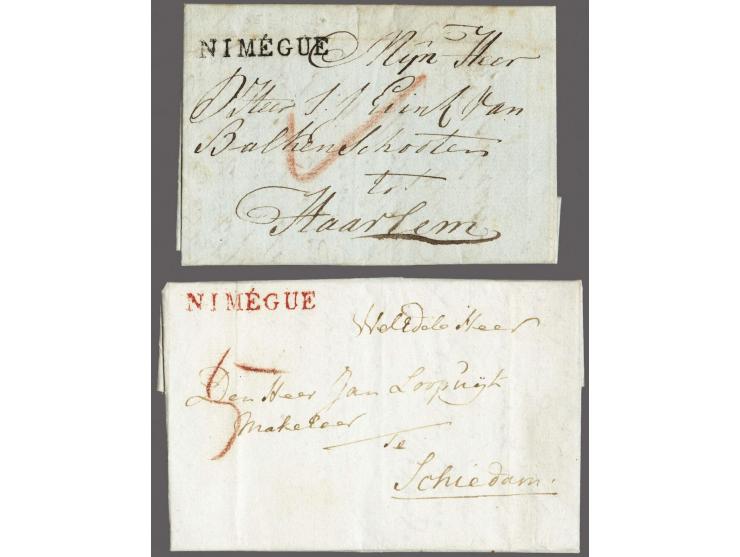 NIMÉGUE Mijn Heer
D'Heer S. J. Eeink Van
Balken Schooten
tot
Haarlem
NIMÉGUE
WelEdele Heer
5
Den Heer Jan Loopuijt
Makelaar
Te
Schiedam.